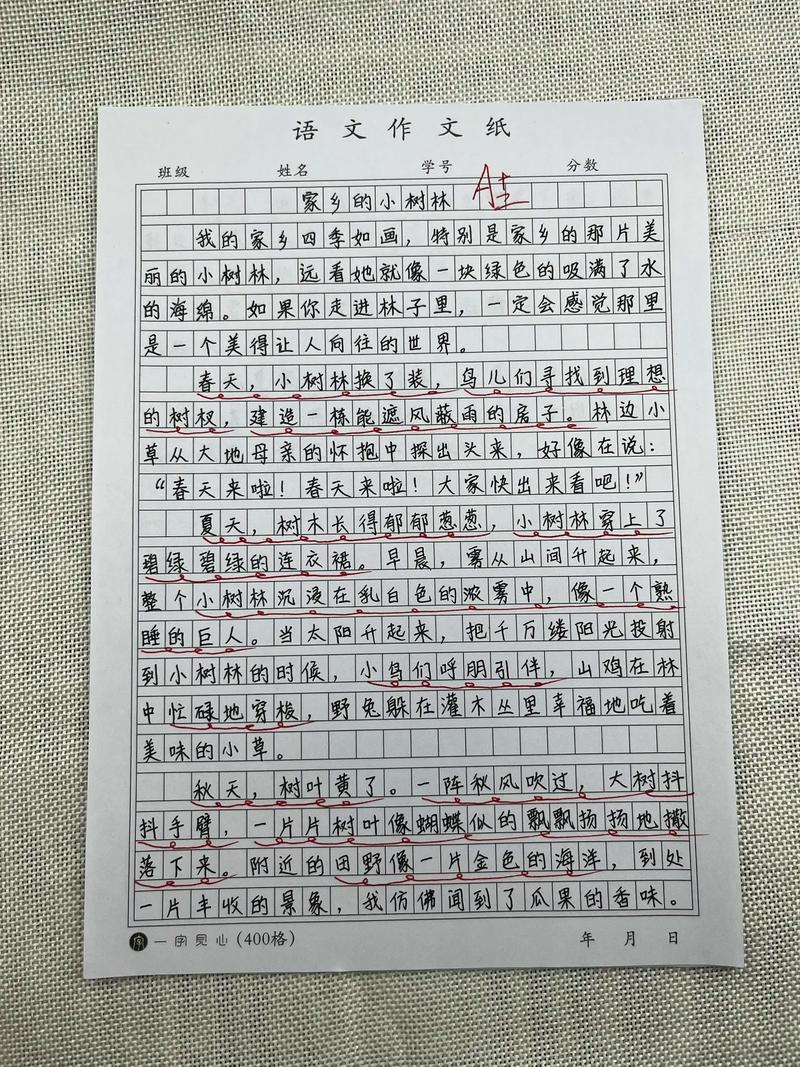 语文作文纸
班级 姓名 学号 分数
家乡的小树林 A+
我的家乡四季如画，特别是家乡的那片美
丽的小树林，远看她就像一块绿色的吸满了水
的海绵。如果你走进林子里，一定会感觉那里
是一个美得让人向往的世界。
春天，小树林换了装，鸟儿们寻找到理想
的树杈，建造一栋能遮风蔽雨的房子。林边小
草从大地母亲的怀抱中探出头来，好像在说：
“春天来啦！春天来啦！大家快出来看吧！”
夏天，树木长得郁郁葱葱，小树林穿上了
碧绿碧绿的连衣裙。早晨，雾从山间升起来，
整个小树林沉浸在乳白色的浓雾中，像一个熟
睡的巨人。当太阳升起来，把千万缕阳光投射
到小树林的时候，小鸟们呼朋引伴，山鸡在林
中忙碌地穿梭，野兔躲在灌木丛里幸福地吃着
美味的小草。
秋天，树叶黄了。一阵秋风吹过，大树抖
抖手臂，一片片树叶像蝴蝶似的飘飘扬扬地撒
落下来。附近的田野像一片金色的海洋，到处
一片丰收的景象，我仿佛闻到了瓜果的香味。
一字见心（400格） 年 月 日